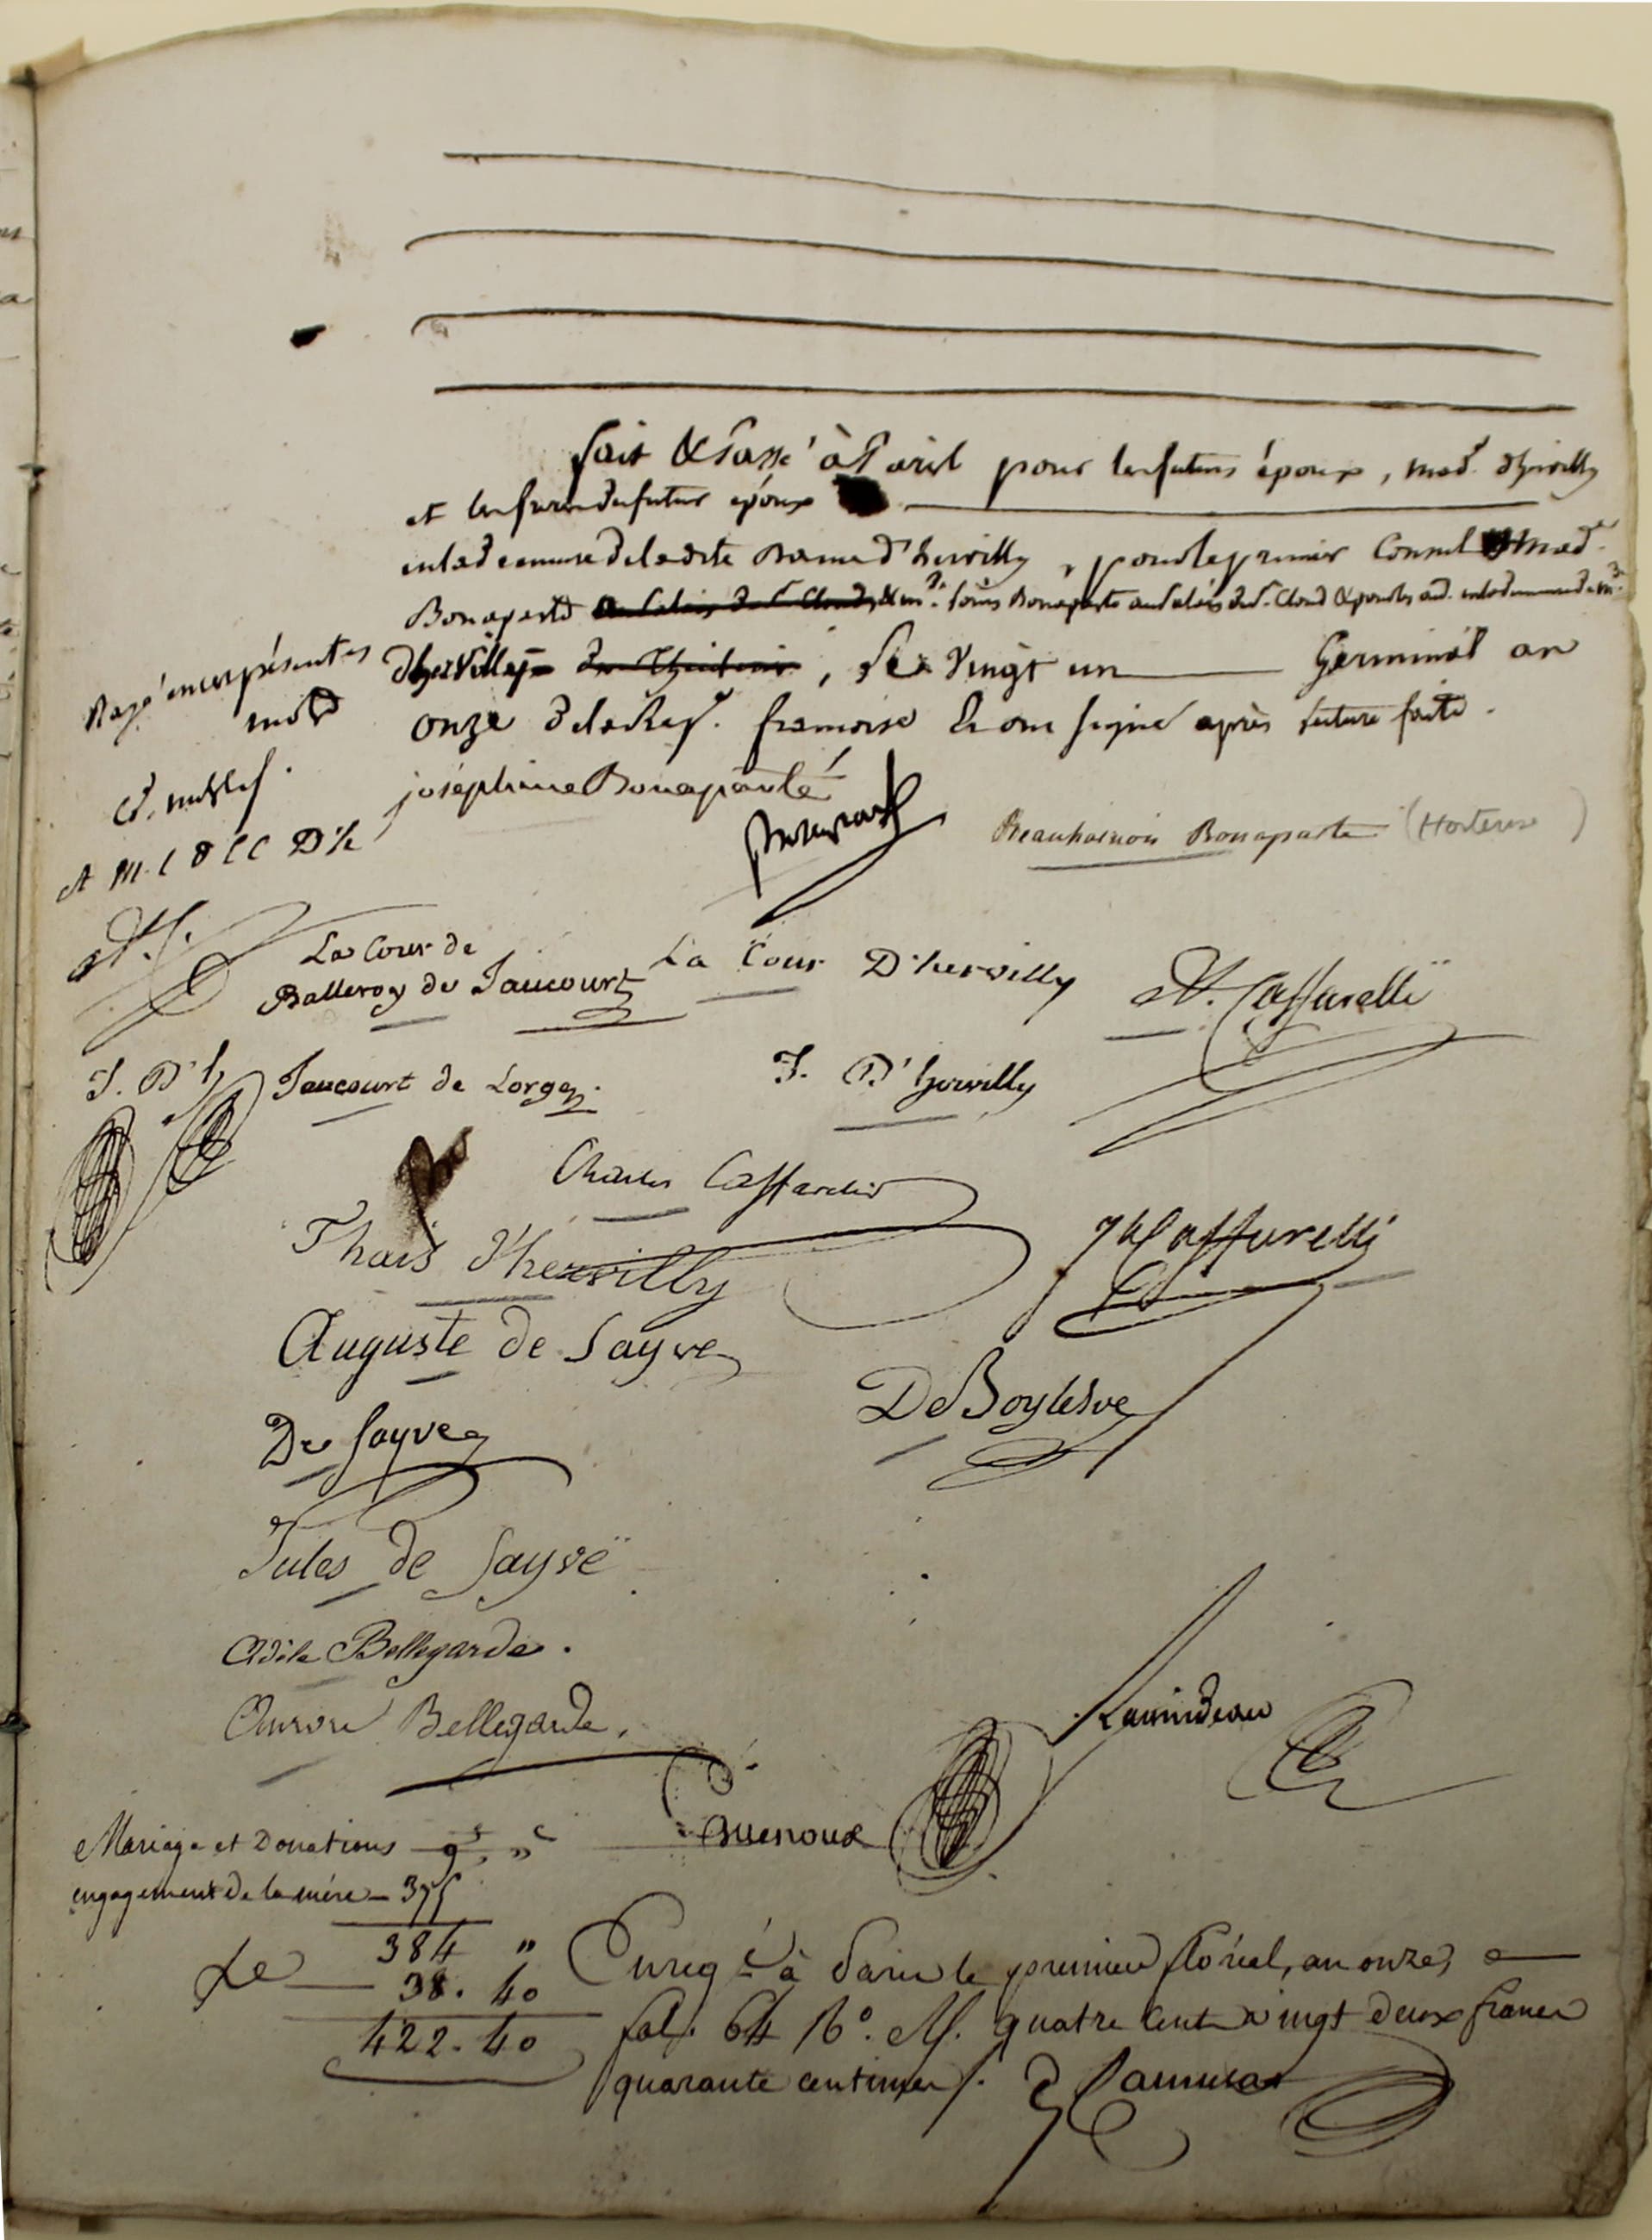 fait & passé à Paris pour les futurs époux, mad.e d'hervilly
et les freres du futur époux
en la demeure de ladite Dame d'hervilly, pour le premier Consul & Mad.e
Bonaparte au Palais de S. Cloud, & m.de Louis Bonaparte au Palais de S. Cloud & pour les
d'hervilly, Le vingt un Germinal an
onze de la Rep. françoise & ont signé après lecture faite.
Rayé onze présents
mots
nuls
A M. L D L C D'h
joséphine Bonaparte
Bonaparte
Beauharnois Bonaparte (Hortense)
La Cour de
Balleroy de Jaucourt
La Cour D'hervilly
A. Caffarelli
J. D'h
Jaucourt de Lorge
J. D'hervilly
Charles Caffarelli
Thaïs d'hervilly
Jh Caffarelli
Auguste de Sayve
De Boylesve
De Sayve
Jules de Sayve
Adèle Bellegarde.
Aurore Bellegarde.
Mariage et Donations 9 "
engagement de la mère 375
384 "
38. 40
422. 40
Enregé à Paris le premier floréal, an onze,
fol. 64 Vº. R. quatre cent vingt deux francs
quarante centimes.